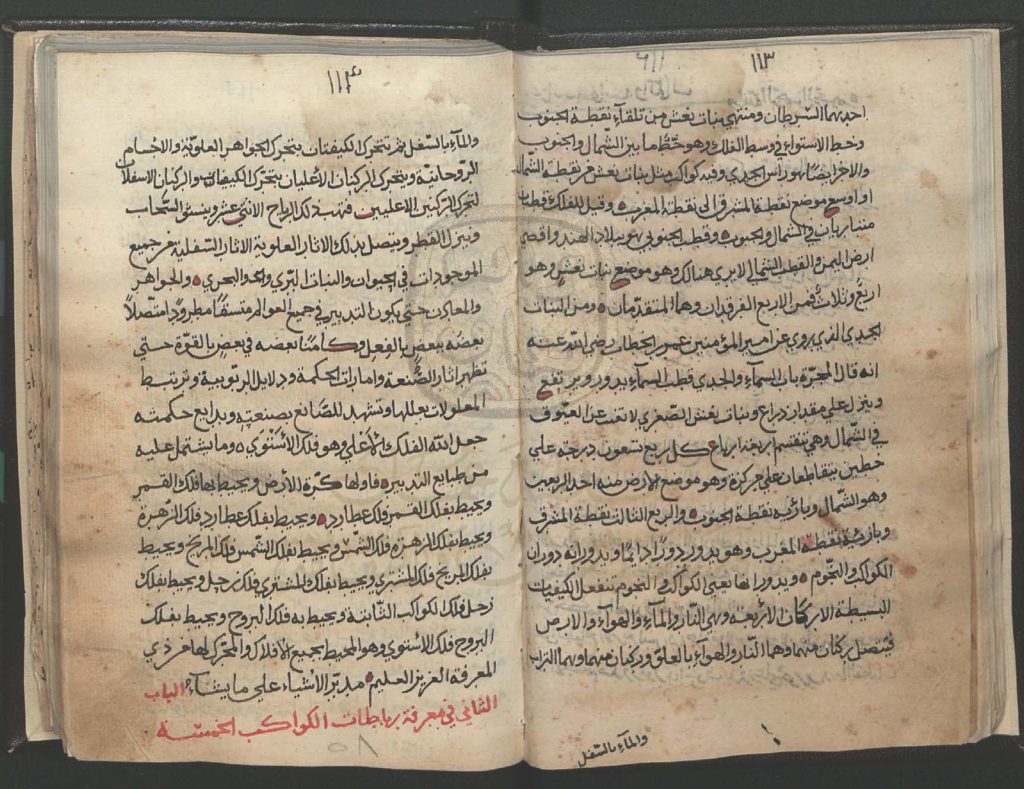 ١١٣
احديهما السرطان ومنتهى بنات نعش من تلقآء نقطة الجنوب
وخط الاستواء في وسط الفلك وهو خط ما بين الشمال والجنوب
والاخر ايضا نهور راس الجدي وفيه كواكب مثل بنات نعش من نقطة الشمال
او اوسع موضع نقطة المشرق الى نقطة المغرب وقيل للفلك قطبان
متقاربان في الشمال والجنوب وقطب الجنوبي ببلاد الهند واقصى
ارض اليمن والقطب الشمالي لا يرى هنالك وهو موضع بنات نعش وهو
اربع وثلاث فمن الاربع الفرقدان وهما المتقدمان ومن البنات
الجدي الذي يروي عن امير المؤمنين عمر بن الخطاب رضي الله عنه
انه قال المجرة باب السمآء والجدي قطب السمآء يدور ويرتفع
وينزل على مقدار ذراع وبنات نعش الصغرى لا تغت عن العيوق
في الشمال وهي تنقسم اربعة ارباع كل اربع تسعون درجة على
خطين يتقاطعان على مركزة وهو موضع الارض منه احد الربعين
وهو الشمال وبازئيه نقطة الجنوب والربع الثالث نقطة المشرق
وبازئيه نقطة المغرب وهو يدور دورا دايما وبدورانه دوران
الكواكب والنجوم وبدورانها يعني الكواكب والنجوم تنفعل الكيفيات
البسيطة الاركان الاربعة وهي النار والمآء والهواء والارض
فيتصل ركنان منهما وهما النار والهوآء بالعلو وركنان منهما وهما التراب
والمآء بالسفل
١١٤
والمآء بالسفل ثم تتحرك الكيفتان بتحرك الجواهر العلوية والاجسام
الروحانية ويتحرك الركنان الاعليان بتحرك الكيفيات والركنان الاسفلان
لتحرك الركنين الاعليين فتهب ذلك الرياح الاثني عشر وينشئ السحاب
وينزل القطر ويتصل بذلك الاثار العلوية الاثار السفلية من جميع
الموجودات في الحيوان والنبات البري والبحري والجواهر
والمعادن حتى يكون التدبير في جميع العوالم متسقا مطرودا متصلا
بعضه ببعض بالفعل وكامنا بعضه في بعض بالقوة حتى
تظهر اثار الصنعة وامارات الحكمة ودلايل الربوبية وترتبط
المعلولات بعللها وتشهد للصانع بصنعته وبدايع حكمته
جعل الله الفلك الاعلى وهو فلك الاستوى وما يشتمل عليه
من طبايع التدبير فاولها كرة الارض ويحيط بها فلك القمر
ويحيط بفلك القمر فلك عطارد ويحيط بفلك عطارد فلك الزهرة
ويحيط بفلك الزهرة فلك الشمس ويحيط بفلك الشمس فلك المريخ ويحيط
بفلك المريخ فلك المشتري ويحيط بفلك المشتري فلك زحل ويحيط بفلك
زحل فلك الكواكب الثابتة ويحيط به فلك البروج ويحيط بفلك
البروج فلك الاستوى وهو المحيط بجميع الافلاك والمحرك لها من ذي
المعرفة العزيز العليم مدبر الاشياء على ما يشآء الباب
الثاني في معرفة رباطات الكواكب الخمسة